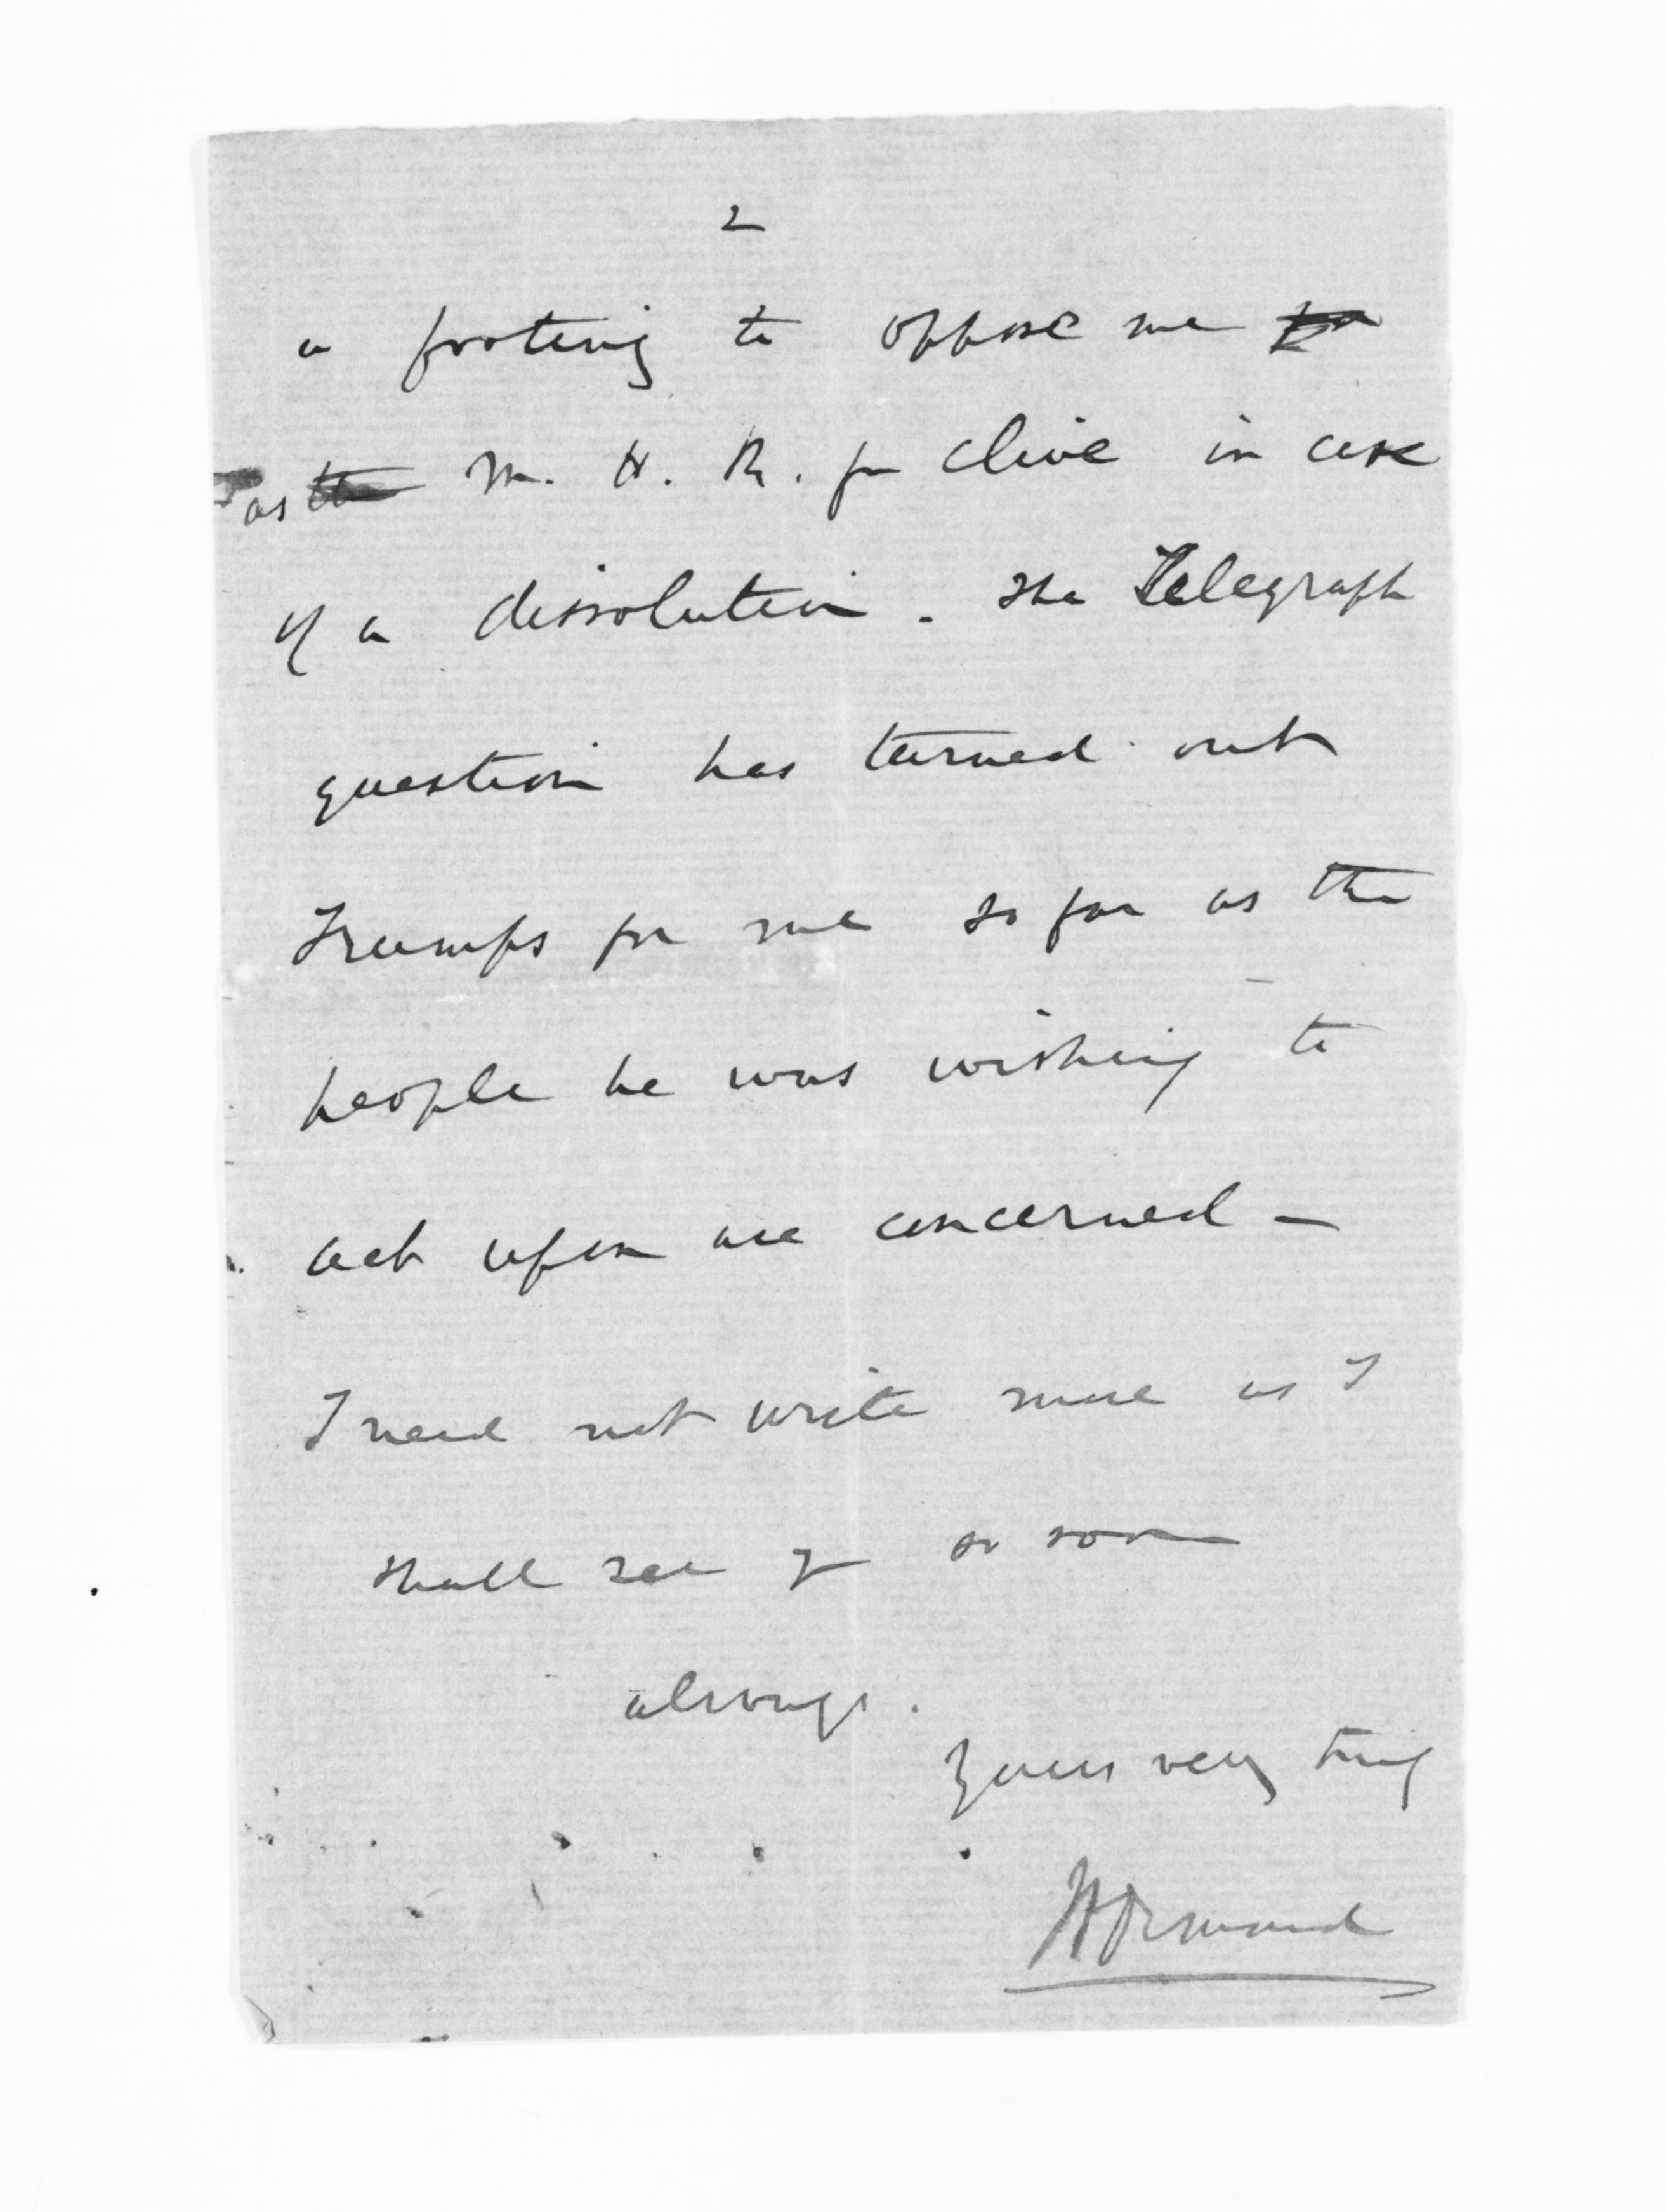 2
a footing to oppose me for
as the M. H. R. for Clive in case
of a dissolution. The Telegraph
question has turned out
Trumps for me so far as the
people he was wishing to
act upon are concerned —
I need not write more as I
shall see you so soon
always.
Yours very truly
J D Ormond